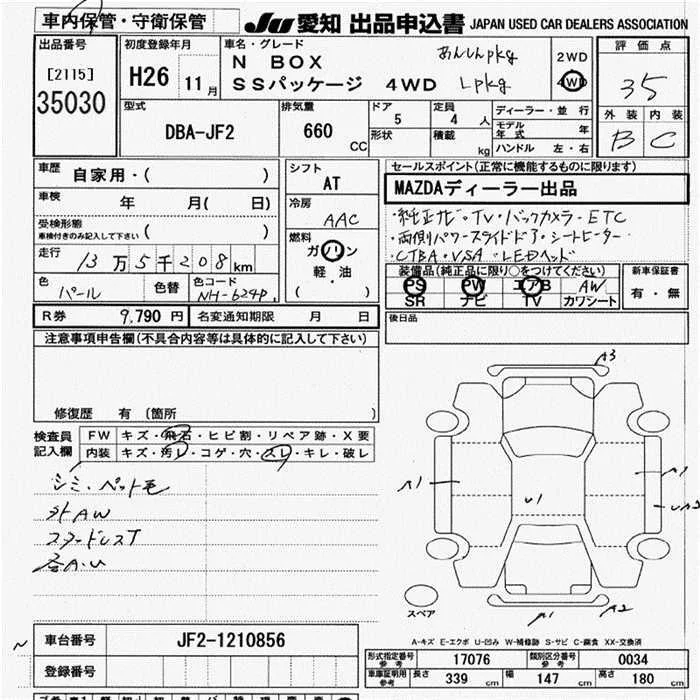 車内保管・守衛保管
JU 愛知 出品申込書 JAPAN USED CAR DEALERS ASSOCIATION
出品番号
[2115]
35030
初度登録年月
H26 11月
車名・グレード
N BOX あんしんpkg
SSパッケージ 4WD Lpkg
2WD
4WD
評価点
35
外装 内装
B C
型式
DBA-JF2
排気量
660 CC
ドア
5
形状
定員
4 人
積載
kg
ディーラー・並行
モデル年式 年
ハンドル 左・右
車歴
自家用・( )
車検
年 月( 日)
受検形態
車検付きのみ記入して下さい ( )
走行
13万5千208km
色
パール
色替
色コード
NH-624P
シフト
AT
冷房
AAC
燃料
ガソリン
軽・油
( )
セールスポイント(正常に機能するものに限ります)
MAZDAディーラー出品
・純正ナビ・TV・バックカメラ・ETC
・両側パワースライドドア・シートヒーター
・CTBA・VSA・LEDヘッド
装備品(純正品に限り○をつけてください)
PS PW エアB AW
SR ナビ TV カワシート
新車保証書
有・無
R券 9,790 円 名変通知期限 月 日
後日品
注意事項申告欄(不具合内容等は具体的に記入して下さい)
修復歴 有 〔箇所 〕
検査員記入欄
FW キズ・飛石・ヒビ割・リペア跡・X要
内装 キズ・汚レ・コゲ・穴・スレ・キレ・破レ
シミ・ペット毛
外AW
スタッドレスT
各A・U
A3
A1
U1
A1
UA2
A1
A2
スペア
A-キズ E-エクボ U-凹み W-補修跡 S-サビ C-腐食 XX-交換済
車台番号 JF2-1210856
登録番号
形式指定番号 参考 17076 類別区分番号 参考 0034
車庫証明用 参考 長さ 339 cm 幅 147 cm 高さ 180 cm